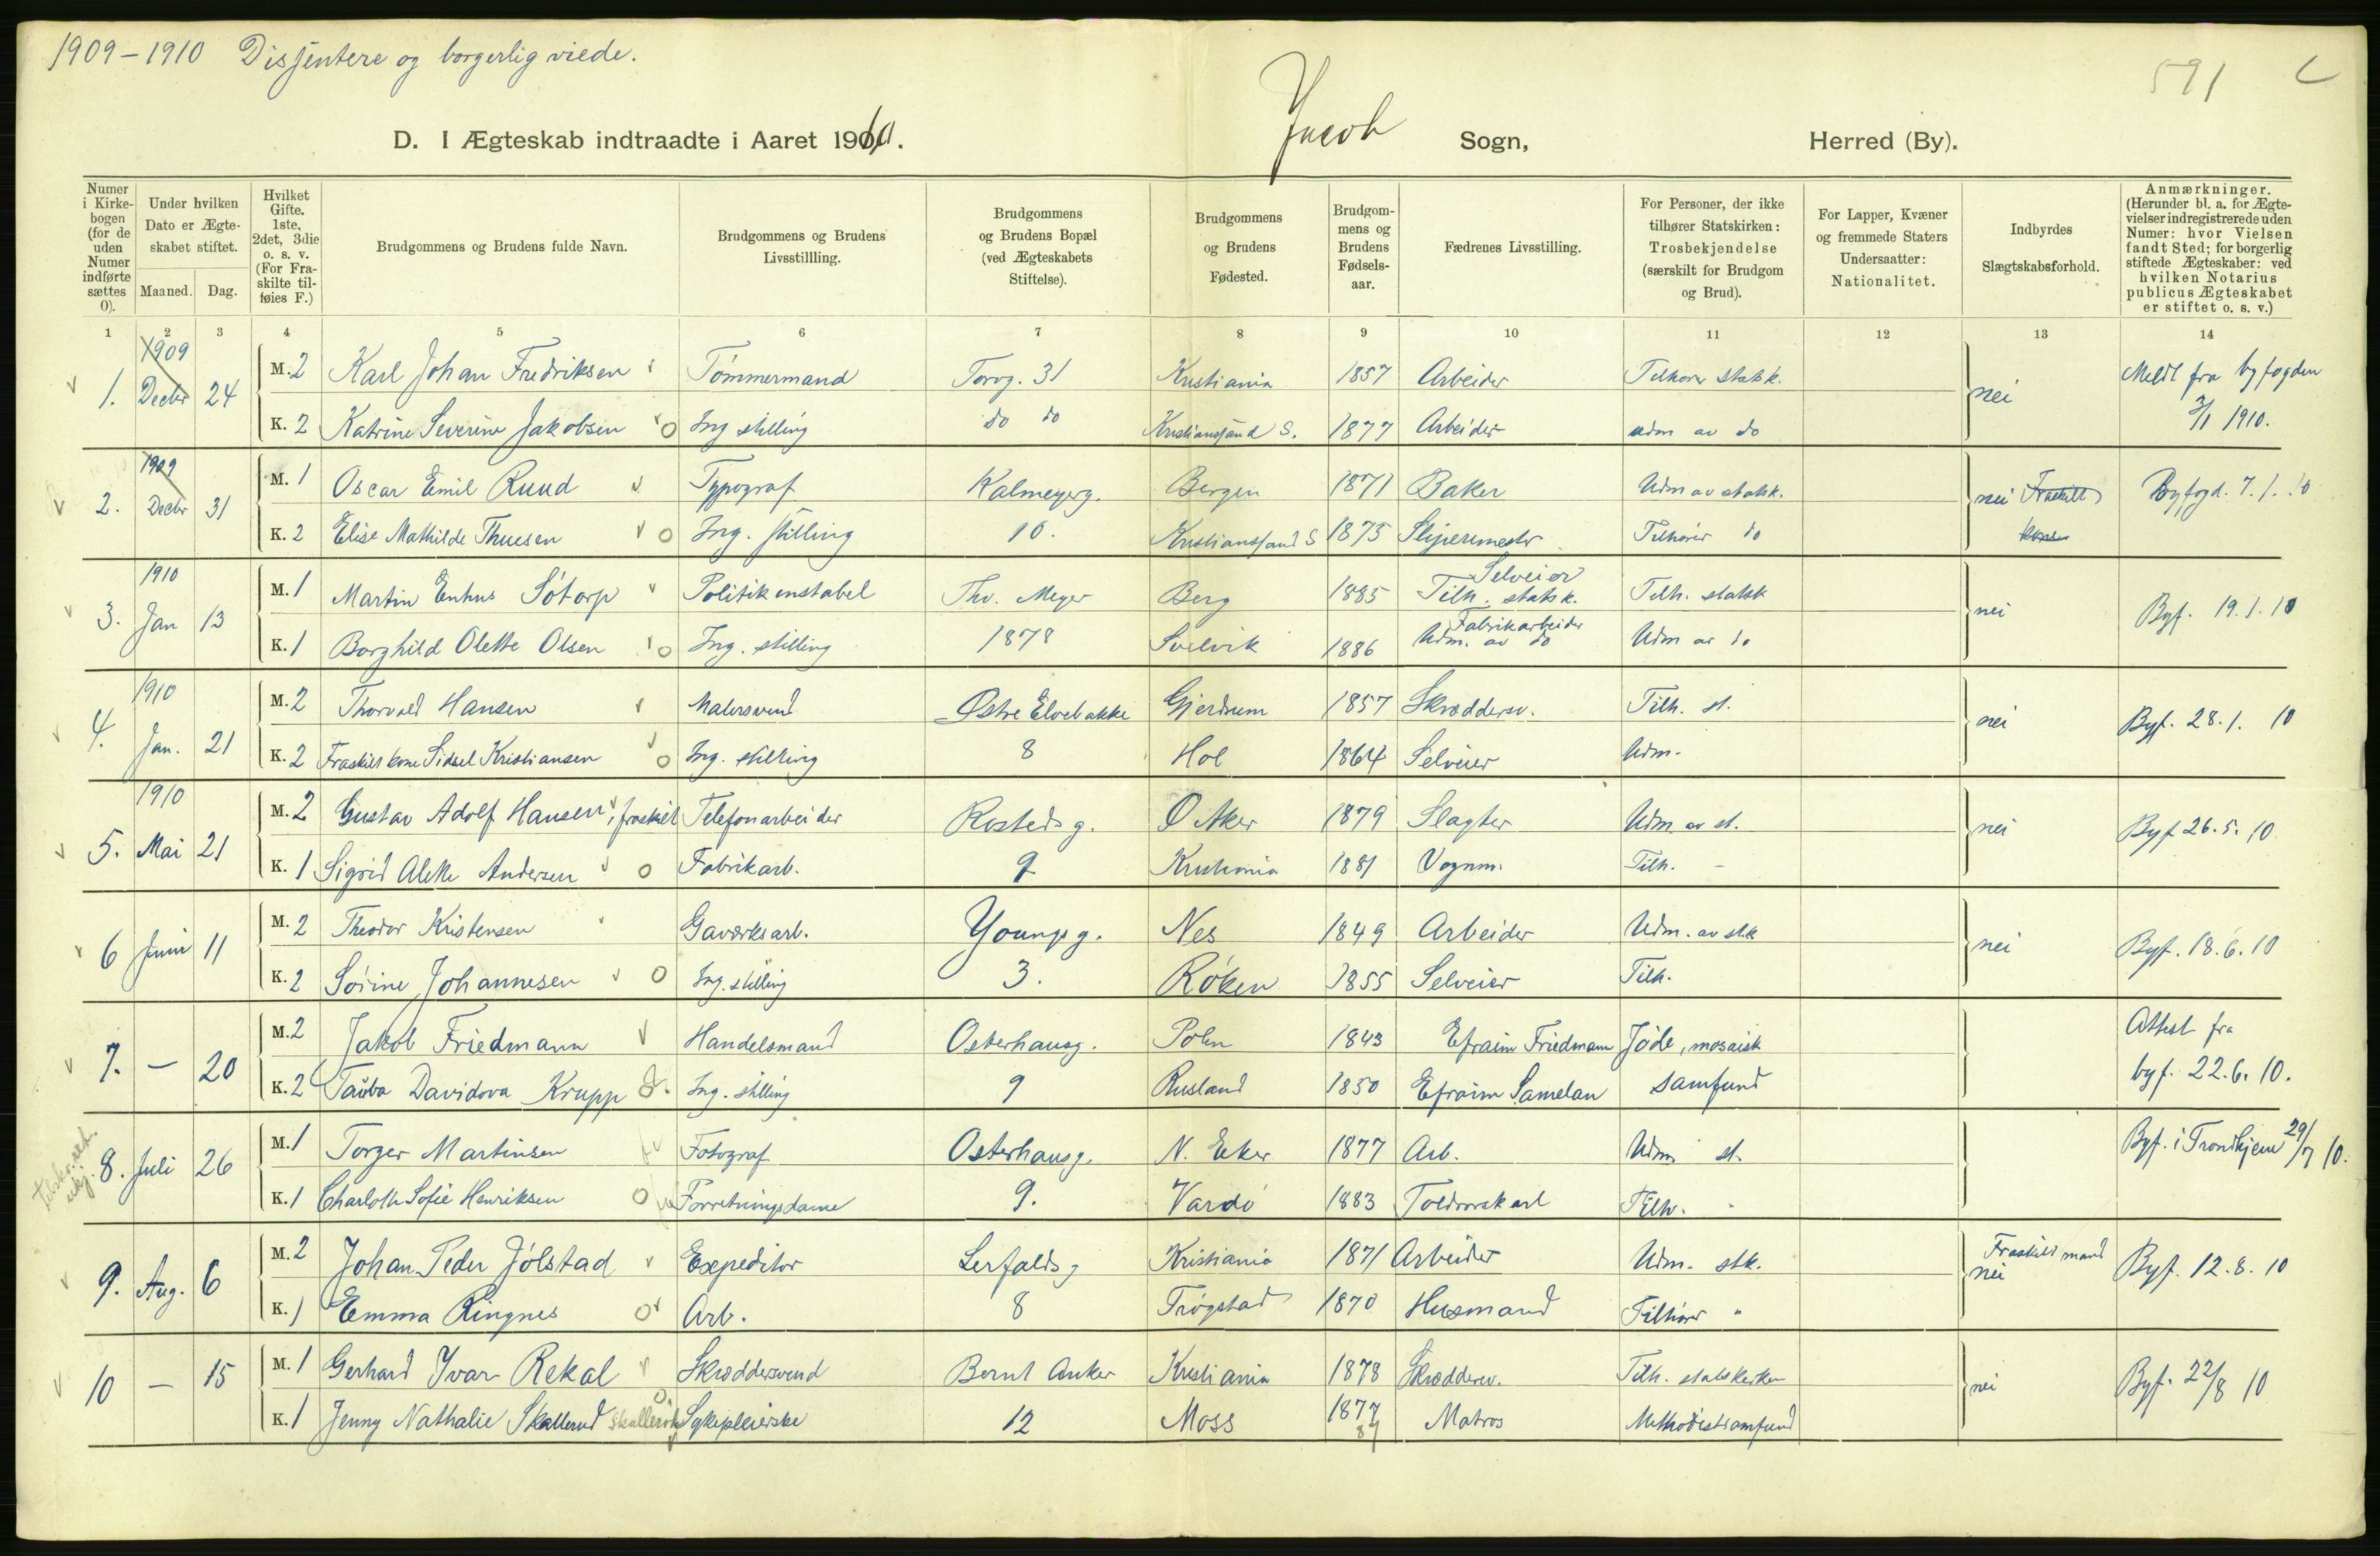 1909-1910 Dissentere og borgerlig viede.
591
D. I Ægteskab indtraadte i Aaret 1910. Jacob Sogn, Herred (By).
Numer i Kirkebogen (for de uden Numer indførte sættes 0).
Under hvilken Dato er Ægteskabet stiftet.
Maaned. Dag.
Hvilket Gifte. 1ste, 2det, 3die o. s. v. (For Fraskilte tilføies F.)
Brudgommens og Brudens fulde Navn.
Brudgommens og Brudens Livsstillling.
Brudgommens og Brudens Bopæl (ved Ægteskabets Stiftelse).
Brudgommens og Brudens Fødested.
Brudgommens og Brudens Fødselsaar.
Fædrenes Livsstilling.
For Personer, der ikke tilhører Statskirken: Trosbekjendelse (særskilt for Brudgom og Brud).
For Lapper, Kvæner og fremmede Staters Undersaatter: Nationalitet.
Indbyrdes Slægtskabsforhold.
Anmærkninger. (Herunder bl. a. for Ægtevielser indregistrerede uden Numer: hvor Vielsen fandt Sted; for borgerlig stiftede Ægteskaber: ved hvilken Notarius publicus Ægteskabet er stiftet o. s. v.)
1 2 3 4 5 6 7 8 9 10 11 12 13 14
1909
1. Decbr 24 M. 2 Karl Johan Fredriksen Tømmermand Torvg. 31 Kristiania 1857 Arbeider Tilhører statsk. nei Meldt fra byfogden 3/1 1910.
K. 2 Katrine Severine Jakobsen Ing stilling do do Kristianssand S. 1877 Arbeider udm av do
1909
2. Decbr 31 M. 1 Oscar Emil Ruud Typograf Kalmeyerg. Bergen 1871 Baker Udm av statsk. nei Fraskilt Byfogd. 7.1.10
K. 2 Elise Mathilde Thuesen Ing. stilling 10. Kristianssand S 1875 Tilhører do kone
1910
3. Jan 13 M. 1 Martin Enhus Søtorp Politikonstabel Thv. Meyer Berg 1885 Selveier Tilh. statsk. Tilh. statsk nei Byf. 19.1.10
K. 1 Borghild Olette Olsen Ing. stilling 1878 Svelvik 1886 Fabrikarbeider Udm. av do Udm av do
1910
4. Jan. 21 M. 2 Thorvald Hansen Malersvend Østre Elvebakke Gjerdrum 1857 Skræddersv. Tilh. st. nei Byf. 28.1. 10
K. 2 Fraskilt kone Sidsel Kristiansen Ing. stilling 8 Hol 1864 Selveier Udm.
1910
5. Mai 21 M. 2 Gustav Adolf Hansen, fraskilt Telefonarbeider Rosteds g. Ø Aker 1879 Slagter Udm. av st. nei Byf 26.5.10
K. 1 Sigrid Alette Andersen Fabrikarb. 9 Kristiania 1881 Vognm. Tilh. -
6 Juni 11 M. 2 Theodor Kristensen Gaværksarb. Youngs g. Nes 1849 Arbeider Udm. av stk nei Byf. 18.6.10
K. 2 Sørine Johannesen Ing. stilling 3. Røken 1855 Selveier Tilh.
7. - 20 M. 2 Jakob Friedmann Handelsmand Osterhausg. Polen 1843 Efraim Friedmann Jøde, mosaisk Attest fra
K. 2 Tauba Davidova Krupp Ing. stilling 9 Rusland 1850 Efraim Samelan samfund byf. 22.6.10.
8. Juli 26 M. 1 Torger Martinsen Fotograf Osterhausg. N. Eker 1877 Arb. Udm st. Byf. i Trondhjem 29/7 10.
K. 1 Charlotte Sofie Henriksen Forretningsdame 9. Vardø 1883 Toldrorskarl Tilh. "
9. Aug. 6 M. 2 Johan Peder Jølstad Expeditor Lerfaldsg Kristiania 1871 Arbeider Udm. stk. Fraskilt mand nei Byf. 12.8.10
K. 1 Emma Ringnes Arb. 8 Trøgstad 1870 Husmand Tilhører "
10 - 15 M. 1 Gerhard Yvar Rekal Skræddersvend Bernt Anker Kristiania 1878 Skræddersv. Tilh. statskirken nei Byf. 22/8 10
K. 1 Jenny Nathalie Skallerud Sykepleierske 12 Moss 1877 Matros Methodistsamfund